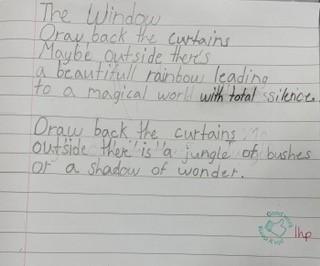 The Window
Draw back the curtains
Maybe outside there's
a beautifull rainbow leading
to a magical world with total silence.
Draw back the curtains
outside there is a jungle of bushes
or a shadow of wonder.
1hp